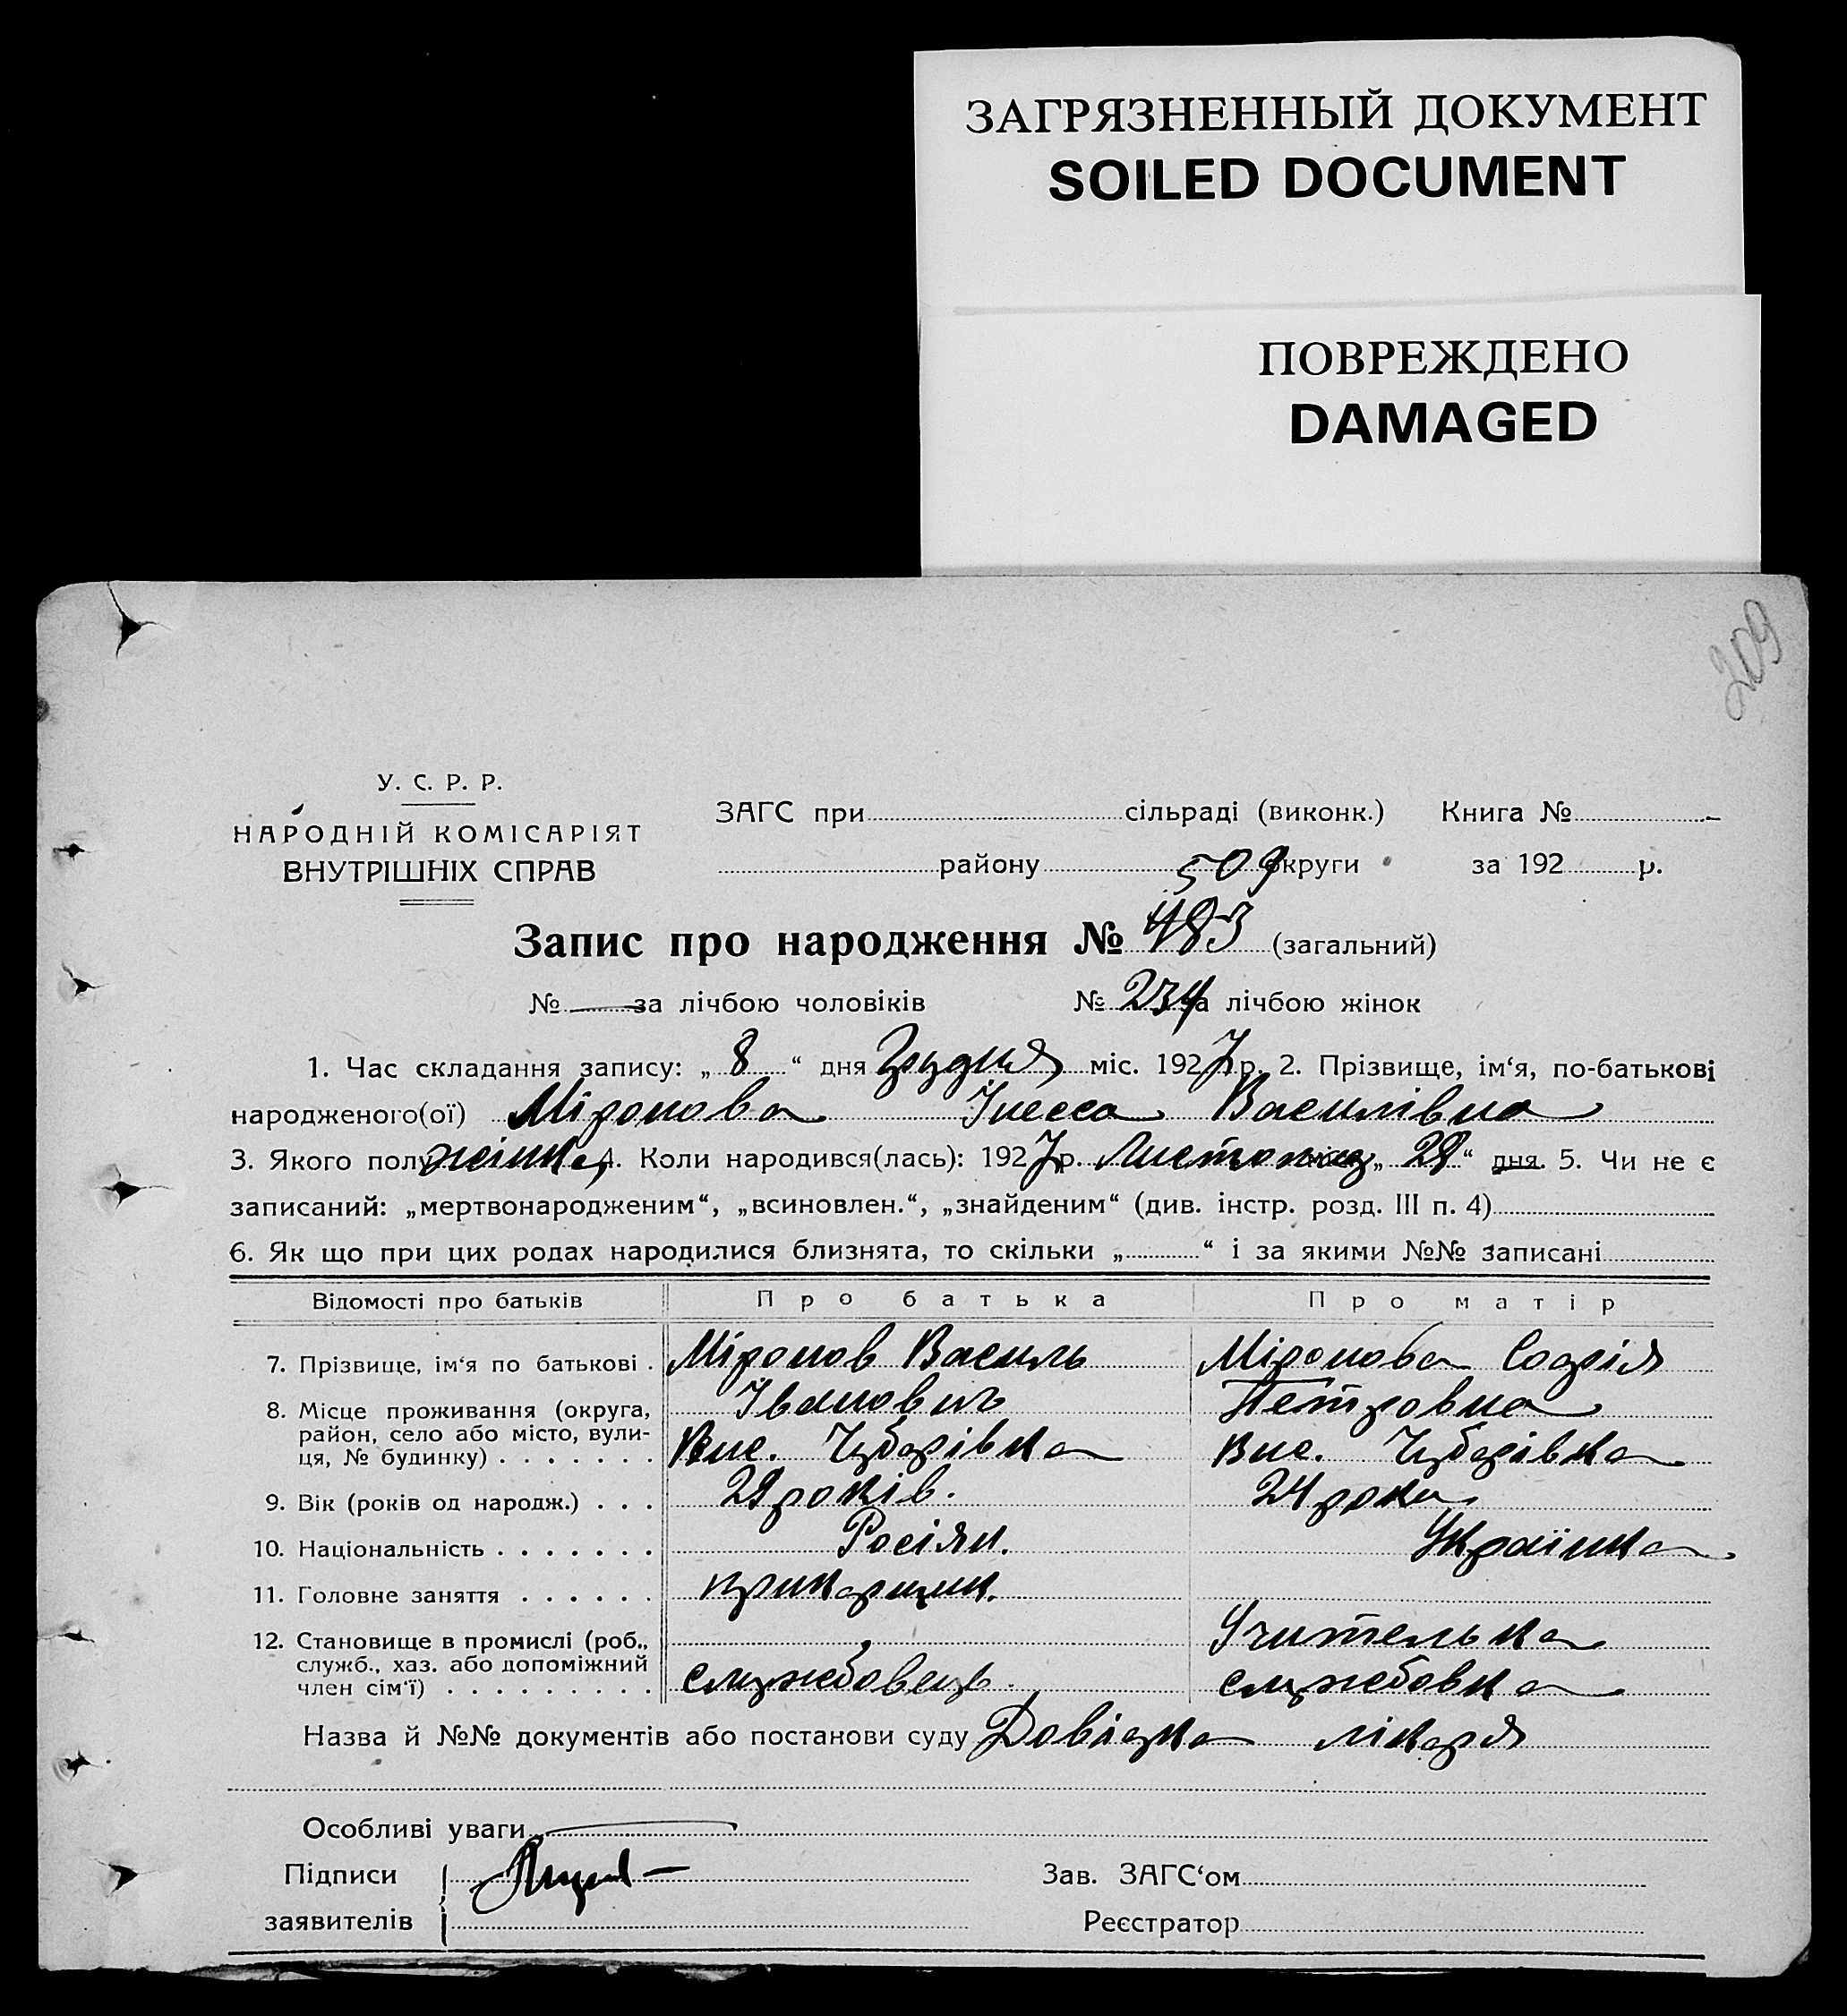 ЗАГРЯЗНЕННЫЙ ДОКУМЕНТ
SOILED DOCUMENT
ПОВРЕЖДЕНО
DAMAGED
209
У. С. Р. Р.
НАРОДНІЙ КОМІСАРІЯТ
ВНУТРІШНІХ СПРАВ
ЗАГС при сільраді (виконк.) Книга №
району округи за 192 р.
509
Запис про народження № 483 (загальний)
№ — за лічбою чоловіків № 234 за лічбою жінок
1. Час складання запису: „ 8 “ дня Грудня міс. 1927 р. 2. Прізвище, ім‘я, по-батькові
народженого(ої) Міронова Інесса Василівна
3. Якого полу жінка, 4. Коли народився(лась): 1927 р. Листопад „ 28 “ дня. 5. Чи не є
записаний: „мертвонародженим“, „всиновлен.“, „знайденим“ (див. інстр. розд. III п. 4)
6. Як що при цих родах народилися близнята, то скільки „ “ і за якими №№ записані
Відомості про батьків Про батька Про матір
7. Прізвище, ім‘я по батькові . Міронов Василь Міронова Софія
Іванович Петровна
8. Місце проживання (округа,
район, село або місто, вули-
ця, № будинку) . . . . . . . Вис. Чубарівка Вис. Чубарівка
9. Вік (років од народж.) . . . 28 років. 24 роки
10. Національність . . . . . . . Росіян. Українка
11. Головне заняття . . . . . . прикарщик.
Учителька
12. Становище в промислі (роб.,
служб., хаз. або допоміжний
член сім‘ї) . . . . . . . . . службовець. службовка
Назва й №№ документів або постанови суду Довідка лікаря
Особливі уваги
Підписи Зав. ЗАГС‘ом
заявителів Реєстратор